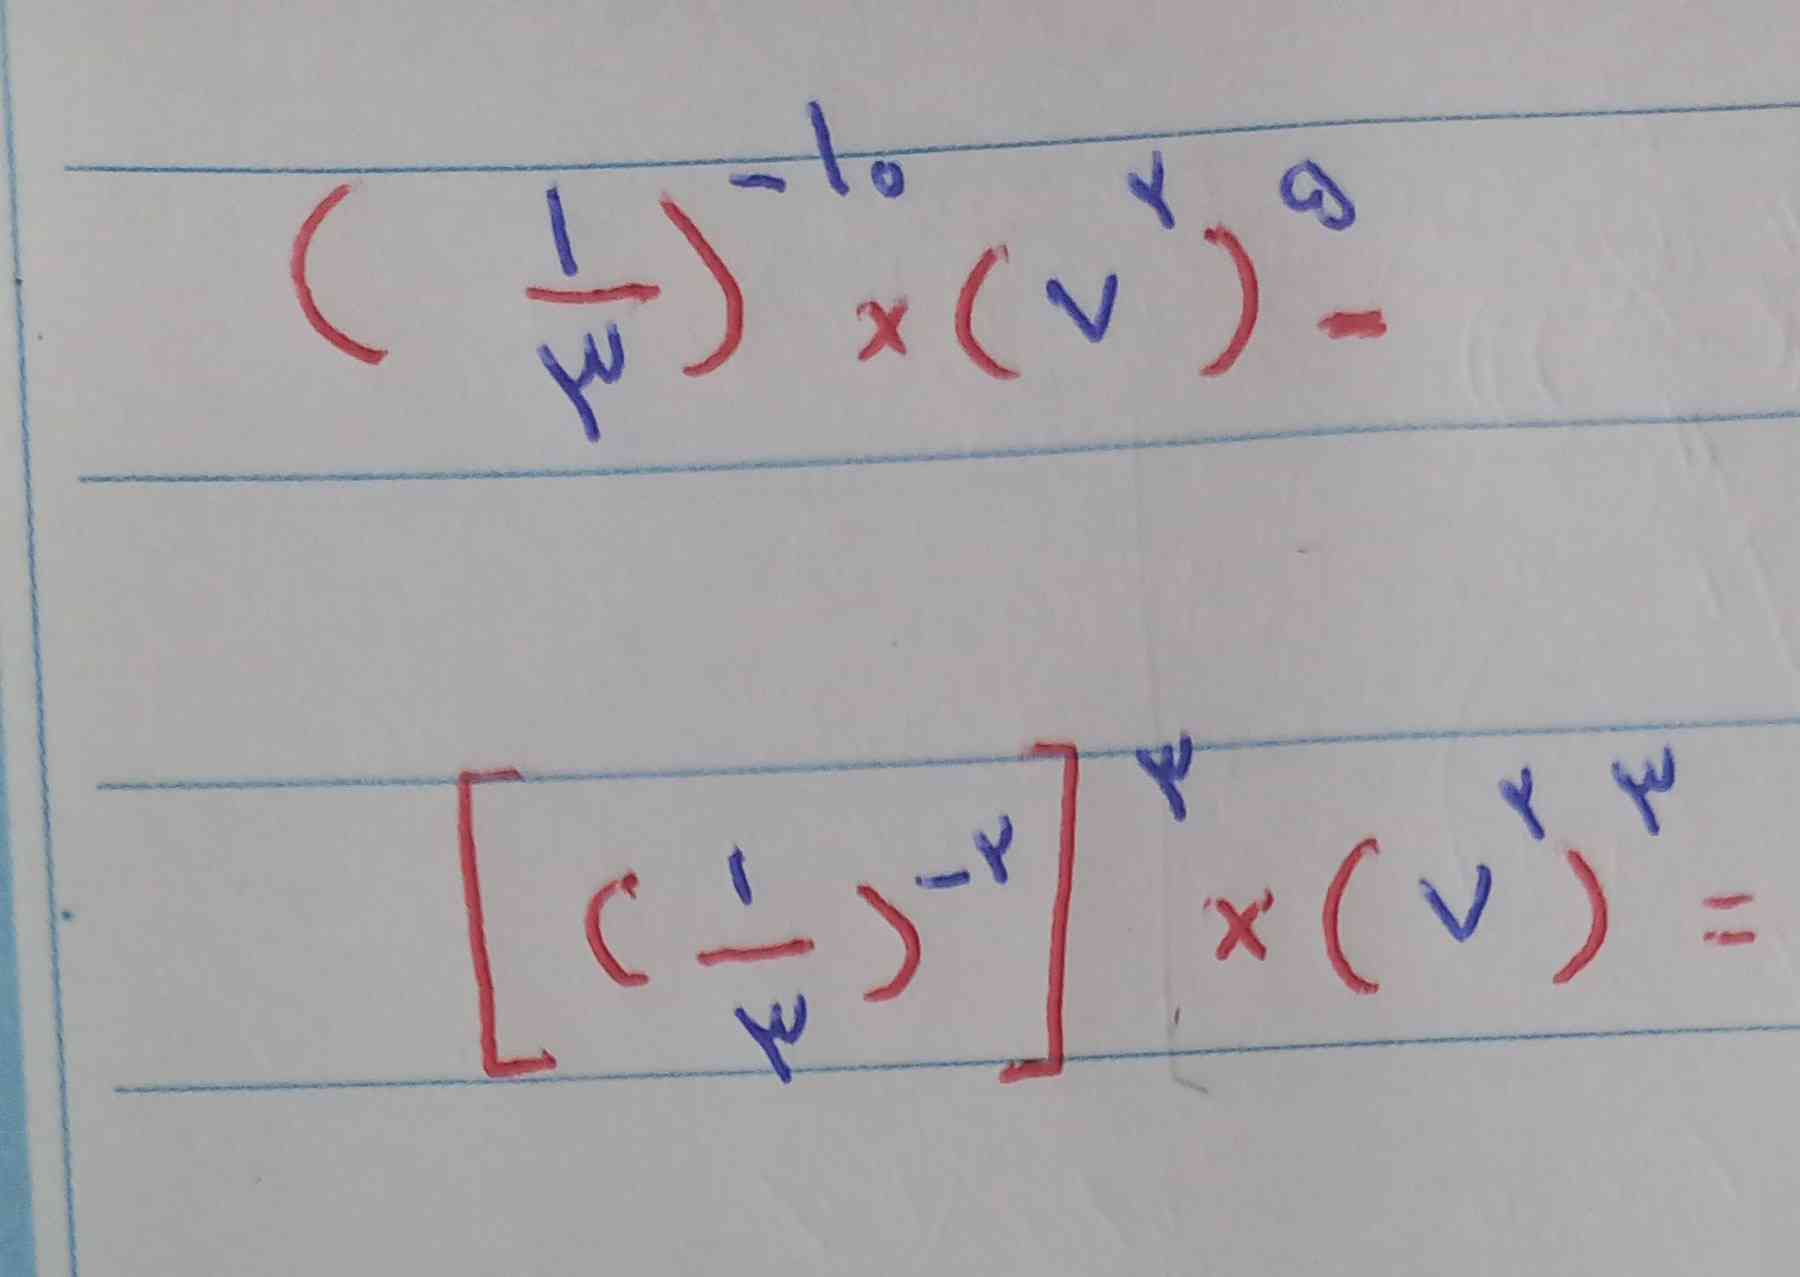 (۱/۳)^-۱۰ × (۷^۲)^۵ -
[(۱/۳)^-۲]^۳ × (۷^۲)^۳ =